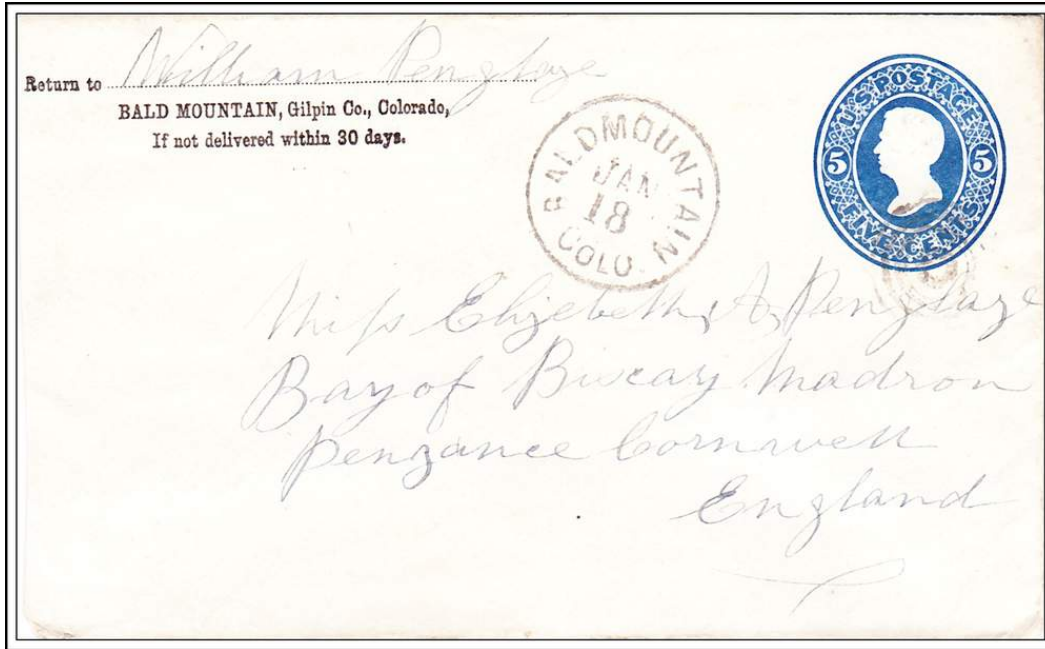 Return to William Penglaze
BALD MOUNTAIN, Gilpin Co., Colorado,
If not delivered within 30 days.
BALD MOUNTAIN
JAN
18
COLO.
U.S. POSTAGE
5 5
FIVE CENTS
Miss Elizebeth A. Penglaze
Bay of Biscay Madron
Penzance Cornwell
England